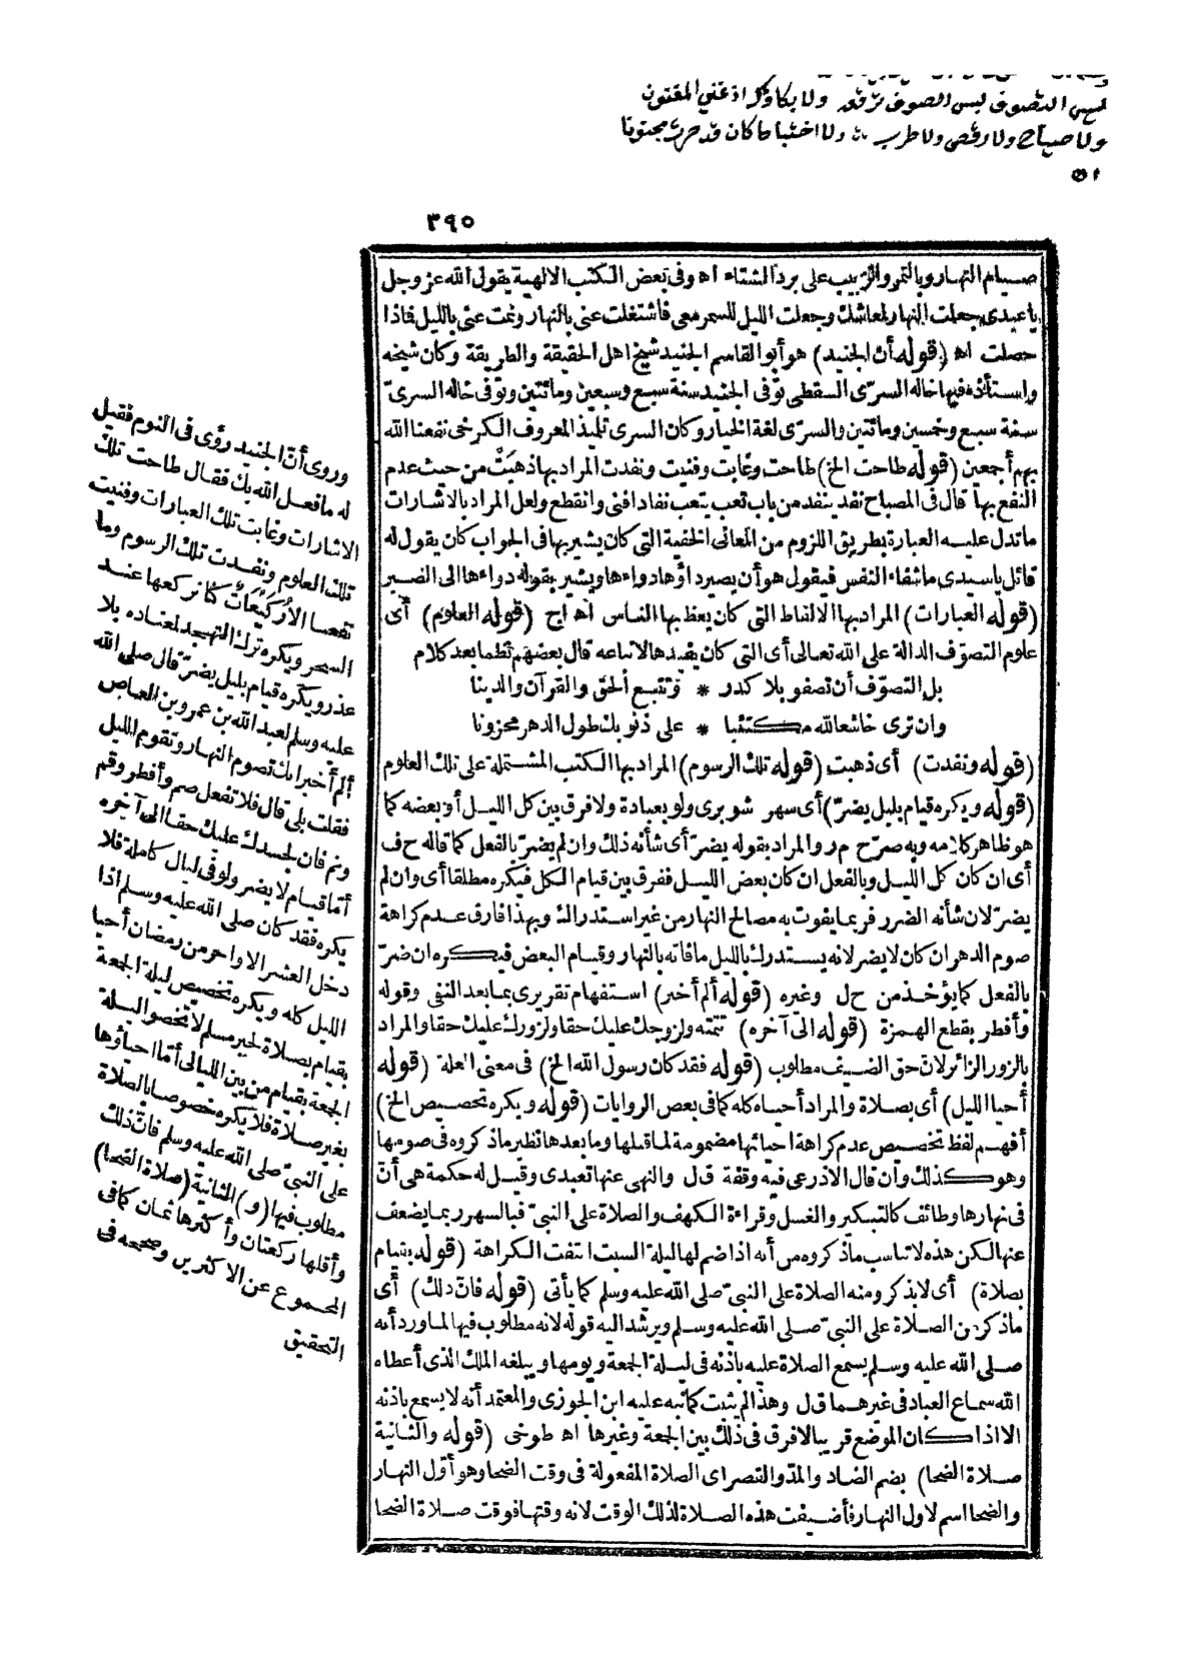 ليس التصوف لبس الصوف ترقعه ولا بكاؤك اذ غنى المغنون
ولا صياح ولا رقص ولا طرب ولا اختباط كان قد صرت مجنونا
اه
٣٩٥
صيام النهار وبالتمر والزبيب على برد الشتاء اه وفى بعض الكتب الالهية يقول الله عز وجل
يا عبدى جعلت النهار لمعاشك وجعلت الليل للسمر معى فاشتغلت عنى بالنهار ونمت عنى بالليل فماذا
حصلت اه (قوله أن الجنيد) هو أبو القاسم الجنيد شيخ اهل الحقيقة والطريقة وكان شيخه
واستأذه فيها خاله السرى السقطى توفى الجنيد سنة سبع وسبعين ومائتين وتوفى خاله السرى
سنة سبع وخمسين ومائتين والسرى لغة الخيار وكان السرى تلميذ المعروف الكرخى نفعنا الله
بهم أجمعين (قوله طاحت الخ) طاحت وغابت وفنيت ونفدت المراد بها ذهبت من حيث عدم
النفع بها قال فى المصباح نفد ينفد من باب تعب يتعب نفادا فنى وانقطع ولعل المراد بالاشارات
ما تدل عليه العبارة بطريق اللزوم من المعانى الخفية التى كان يشير بها فى الجواب كأن يقول له
قائل ياسيدى ما شفاء النفس فيقول هو أن يصير داؤها دواءها ويشير بقوله دواءها الى الضير
(قوله العبارات) المراد بها الالفاظ التى كان يعظ بها الناس اه اج (قوله العلوم) أى
علوم التصوف الدالة على الله تعالى أى التى كان يفيدها لاتباعه قال بعضهم نظما بعد كلام
بل التصوف أن تصفو بلا كدر * وتتبع الحق والقرآن والدينا
وان ترى خاشعا لله مكتئبا * على ذنوبك طول الدهر محزونا
(قوله ونفدت) أى ذهبت (قوله تلك الرسوم) المراد بها الكتب المشتملة على تلك العلوم
(قوله ويكره قيام بليل يضر) أى سهر شوبرى ولو بعبادة ولا فرق بين كل الليل أو بعضه كما
هو ظاهر كلامه وبه صرح م ر والمراد بقوله يضر أى شأنه ذلك وان لم يضر بالفعل كما قاله ح ف
أى ان كان كل الليل وبالفعل ان كان بعض الليل ففرق بين قيام الكل فيكره مطلقا أى وان لم
يضر لان شأنه الضرر فربما يفوت به مصالح النهار من غير استدراك وبهذا فارق عدم كراهة
صوم الدهر ان كان لا يضر لانه يستدرك بالليل ما فاته بالنهار وقيام البعض فيكره ان ضر
بالفعل كما يؤخذ من ح ل وغيره (قوله ألم أخبر) استفهام تقريرى بما بعد النفى وقوله
وأفطر بقطع الهمزة (قوله الى آخره) تتمته ولزوجك عليك حقا ولزورك عليك حقا والمراد
بالزور الزائر لان حق الضيف مطلوب (قوله فقد كان رسول الله الخ) فى معنى العلة (قوله
أحيا الليل) أى بصلاة والمراد أحياه كله كما فى بعض الروايات (قوله ويكره تخصيص الخ)
أفهم لفظ تخصيص عدم كراهة احيائها مضمومة لما قبلها وما بعدها نظير ما ذكروه فى صومها
وهو كذلك وان قال الاذرعى فيه وقفة ق ل والنهى عنها تعبدى وقيل له حكمة هى أن
فى نهارها وظائف كالتبكير والغسل وقراءة الكهف والصلاة على النبى فبالسهر ربما يضعف
عنها لكن هذه لا تناسب ما ذكروه من أنه اذا ضم لها ليلة السبت انتفت الكراهة (قوله بقيام
بصلاة) أى لا بذكر ومنه الصلاة على النبى صلى الله عليه وسلم كما يأتى (قوله فان ذلك) أى
ما ذكر من الصلاة على النبى صلى الله عليه وسلم ويرشد اليه قوله لانه مطلوب فيها لما ورد أنه
صلى الله عليه وسلم يسمع الصلاة عليه باذنه فى ليلة الجمعة ويومها ويبلغه الملك الذى أعطاه
الله سماع العباد فى غيرهما ق ل وهذا لم يثبت كما نبه عليه ابن الجوزى والمعتمد أنه لا يسمع باذنه
الا اذا كان الموضع قريبا لا فرق فى ذلك بين الجمعة وغيرها اه طوخى (قوله والثانية
صلاة الضحا) بضم الضاد والمد والقصر اى الصلاة المفعولة فى وقت الضحا وهو أول النهار
والضحا اسم لاول النهار فأضيفت هذه الصلاة لذلك الوقت لانه وقتها فوقت صلاة الضحا
وروى أن الجنيد رؤى فى النوم فقيل
له ما فعل الله بك فقال طاحت تلك
الاشارات وغابت تلك العبارات وفنيت
تلك العلوم ونفدت تلك الرسوم وما
نفعنا الا ركيعات كنا نركعها عند
السحر ويكره ترك التهجد لمعتاده بلا
عذر ويكره قيام بليل يضر قال صلى الله
عليه وسلم لعبد الله بن عمرو بن العاص
ألم أخبر انك تصوم النهار وتقوم الليل
فقلت بلى قال فلا تفعل صم وأفطر وقم
ونم فان لجسدك عليك حقا الى آخره
أما قيام لا يضر ولو فى ليال كاملة فلا
يكره فقد كان صلى الله عليه وسلم اذا
دخل العشر الاواخر من رمضان أحيا
الليل كله ويكره تخصيص ليلة الجمعة
بقيام بصلاة لخبر مسلم لا تخصوا ليلة
الجمعة بقيام من بين الليالى أما احياؤها
بغير صلاة فلا يكره خصوصا بالصلاة
على النبى صلى الله عليه وسلم فان ذلك
مطلوب فيها (و) الثانية (صلاة الضحا)
وأقلها ركعتان وأكثرها ثمان كما فى
المجموع عن الاكثرين وصححه فى
التحقيق